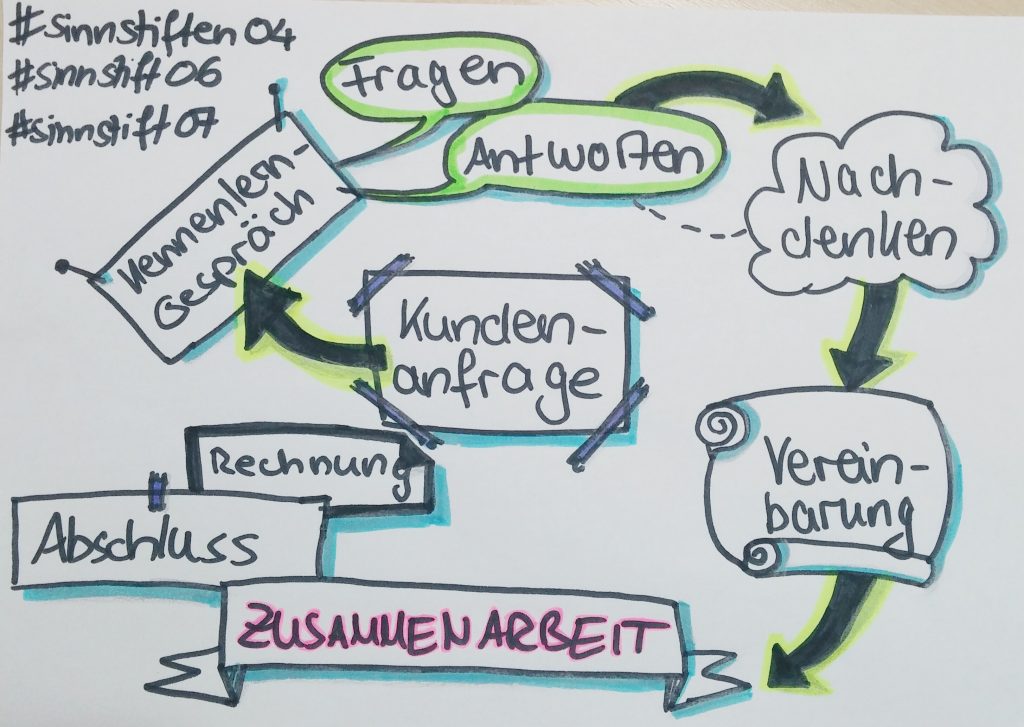 #sinnstiften04
#sinnstift06
#sinnstift07
Fragen
Antworten
Nach-
denken
Kennenlern-
gespräch
Kunden-
anfrage
Verein-
barung
Rechnung
Abschluss
ZUSAMMENARBEIT